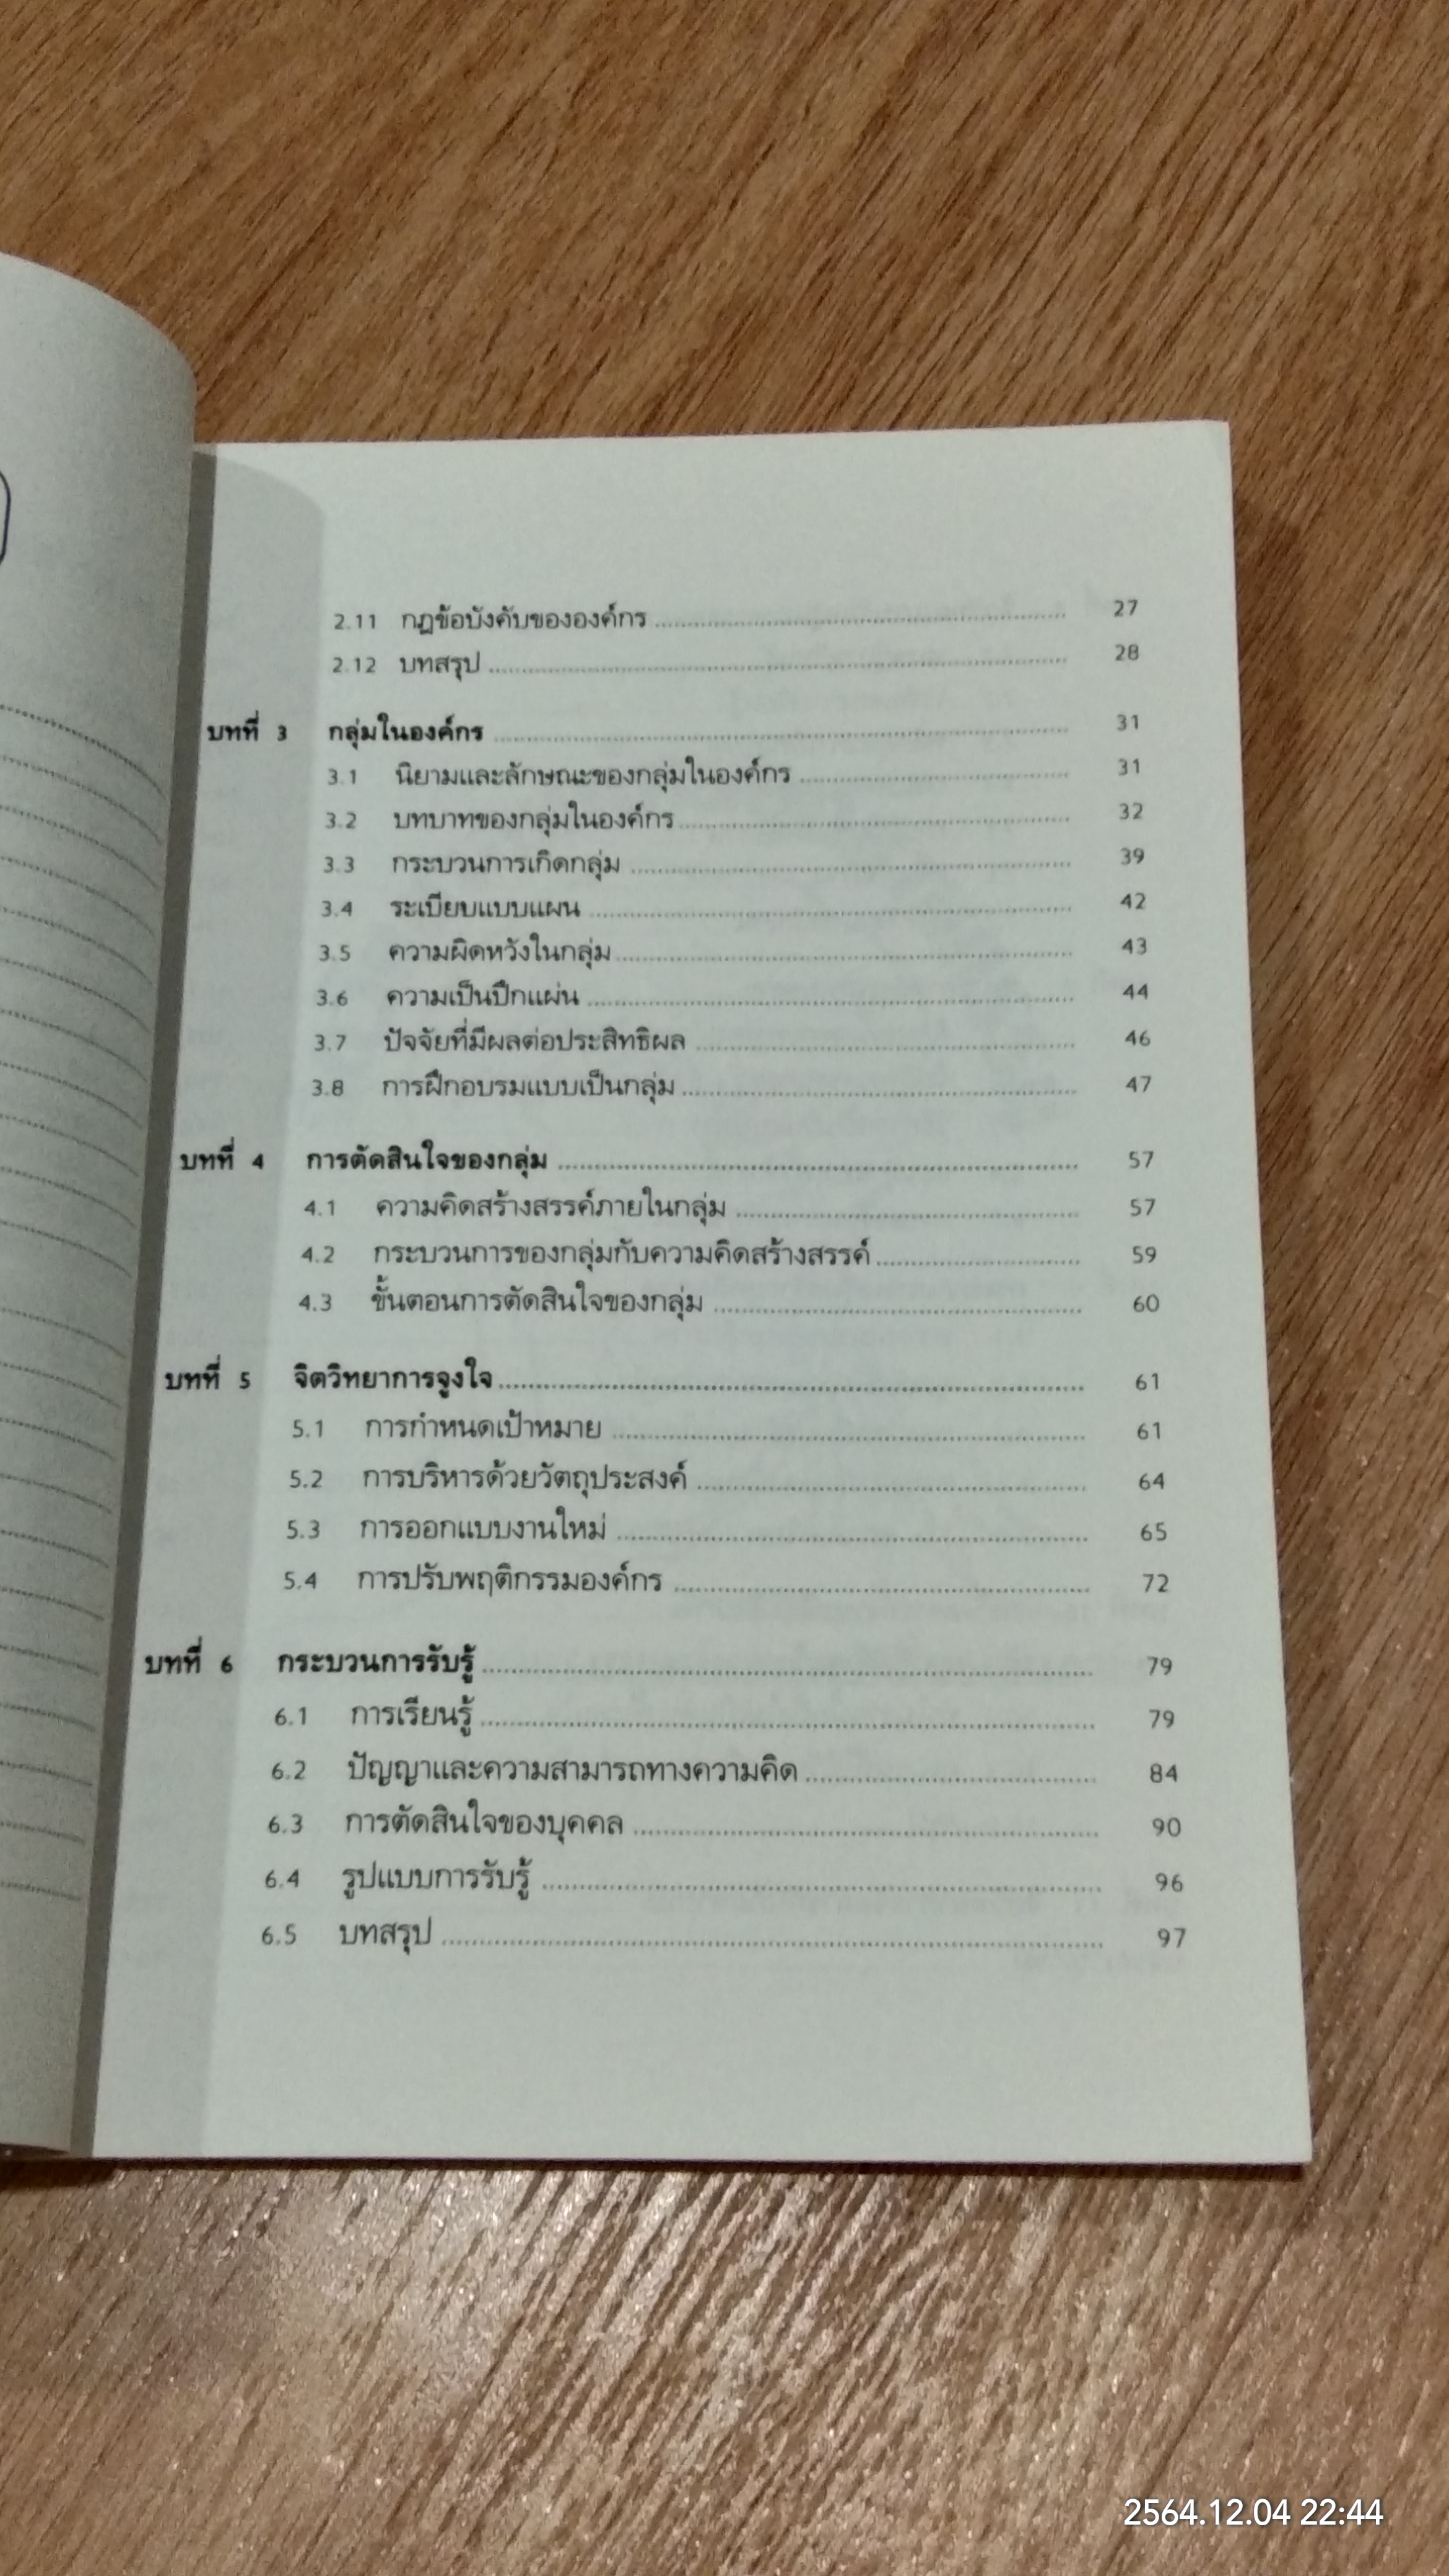 2.11 กฎข้อบังคับขององค์กร ........ 27
2.12 บทสรุป ........ 28
บทที่ 3 กลุ่มในองค์กร ........ 31
3.1 นิยามและลักษณะของกลุ่มในองค์กร ........ 31
3.2 บทบาทของกลุ่มในองค์กร ........ 32
3.3 กระบวนการเกิดกลุ่ม ........ 39
3.4 ระเบียบแบบแผน ........ 42
3.5 ความผิดหวังในกลุ่ม ........ 43
3.6 ความเป็นปึกแผ่น ........ 44
3.7 ปัจจัยที่มีผลต่อประสิทธิผล ........ 46
3.8 การฝึกอบรมแบบเป็นกลุ่ม ........ 47
บทที่ 4 การตัดสินใจของกลุ่ม ........ 57
4.1 ความคิดสร้างสรรค์ภายในกลุ่ม ........ 57
4.2 กระบวนการของกลุ่มกับความคิดสร้างสรรค์ ........ 59
4.3 ขั้นตอนการตัดสินใจของกลุ่ม ........ 60
บทที่ 5 จิตวิทยาการจูงใจ ........ 61
5.1 การกำหนดเป้าหมาย ........ 61
5.2 การบริหารด้วยวัตถุประสงค์ ........ 64
5.3 การออกแบบงานใหม่ ........ 65
5.4 การปรับพฤติกรรมองค์กร ........ 72
บทที่ 6 กระบวนการรับรู้ ........ 79
6.1 การเรียนรู้ ........ 79
6.2 ปัญญาและความสามารถทางความคิด ........ 84
6.3 การตัดสินใจของบุคคล ........ 90
6.4 รูปแบบการรับรู้ ........ 96
6.5 บทสรุป ........ 97
2564.12.04 22:44